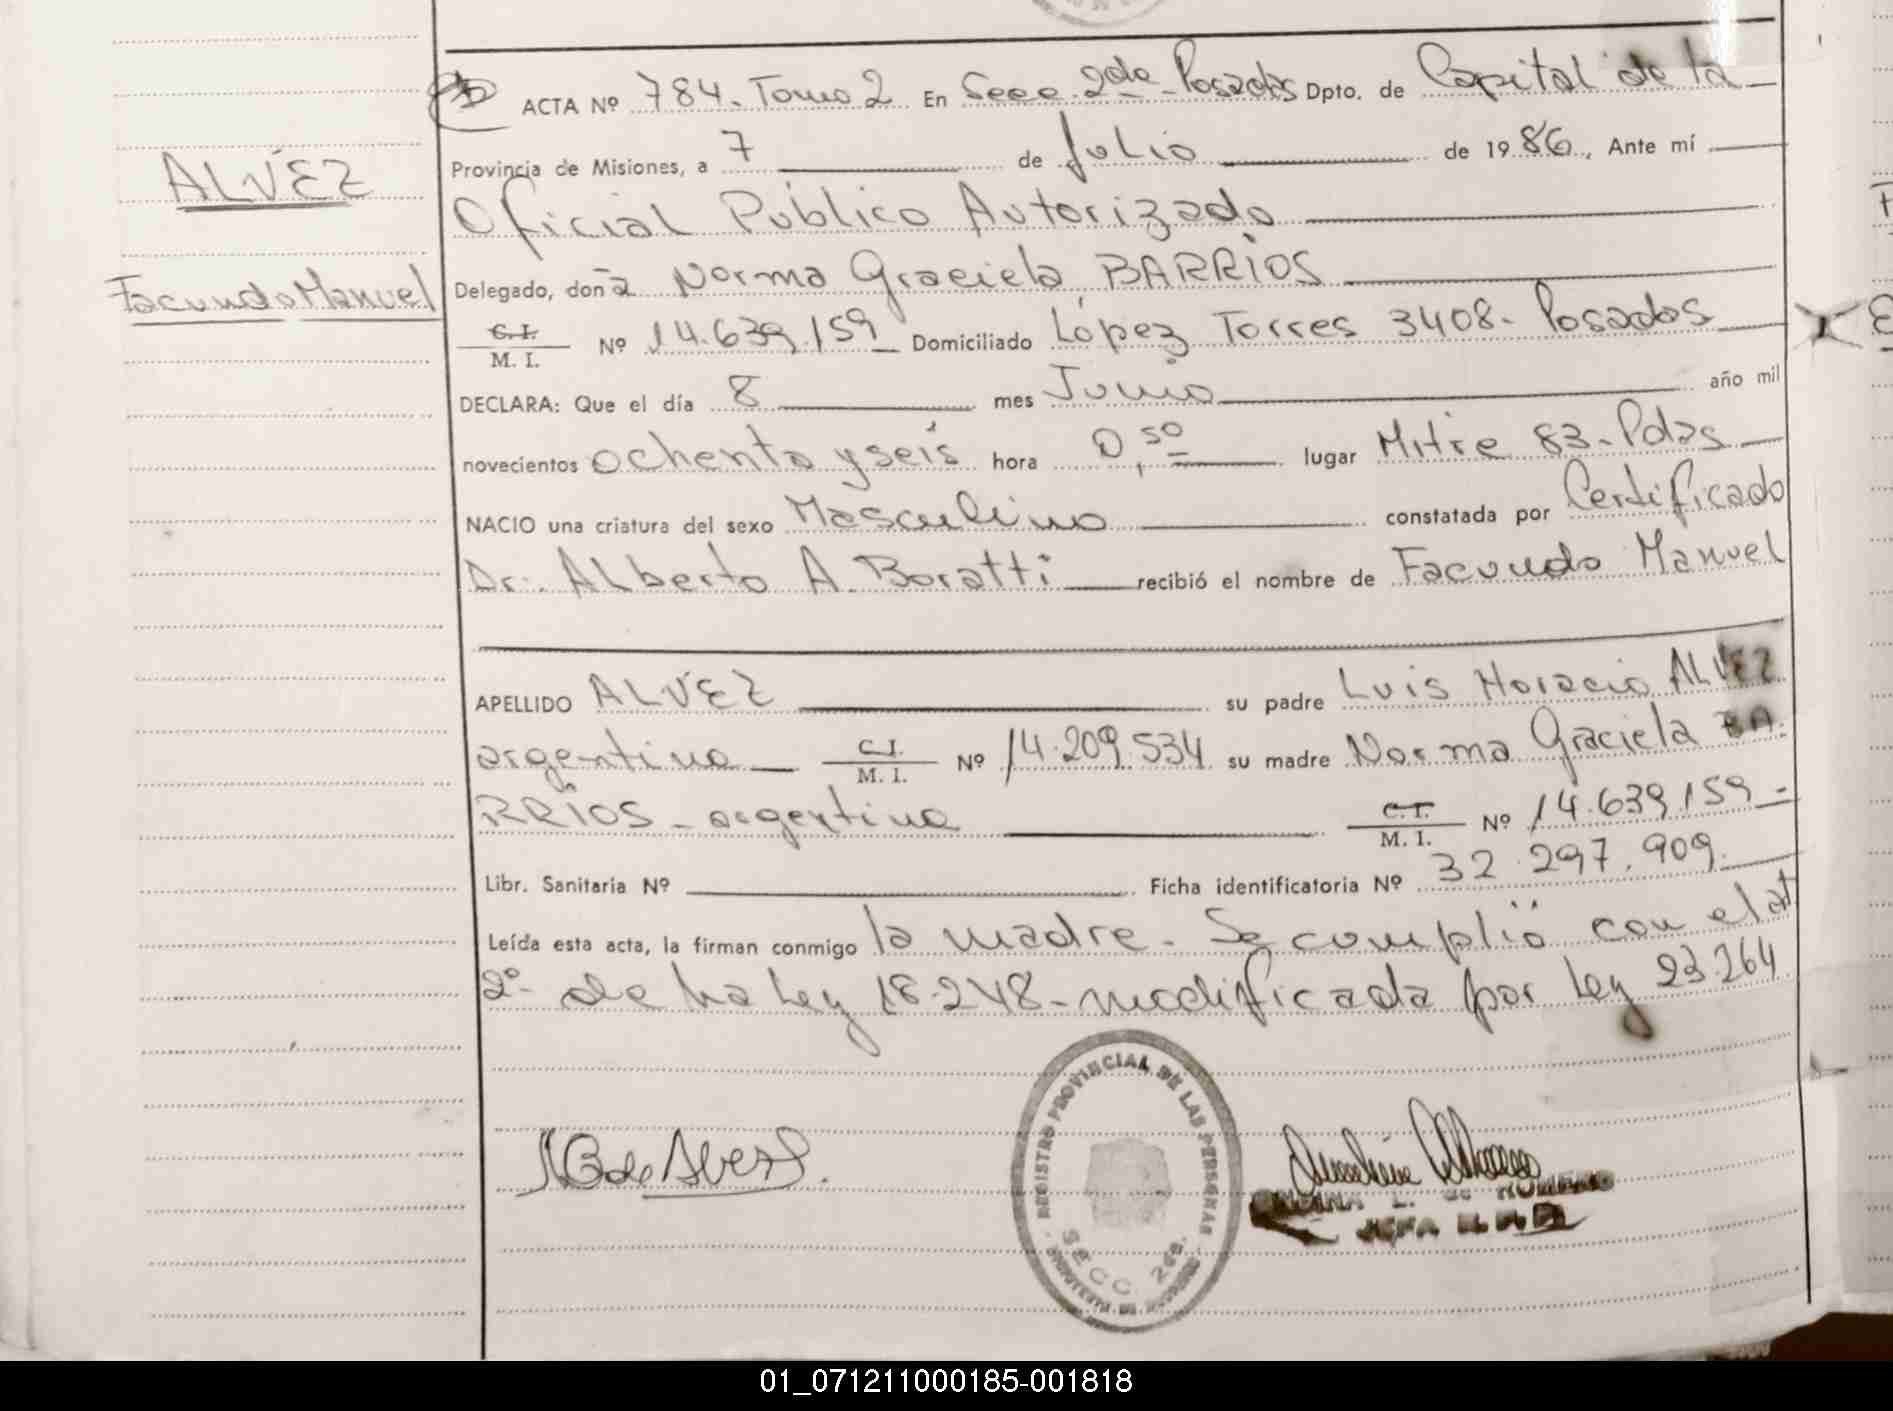 ACTA Nº 784. Tomo 2 En Secc. 2da Posadas Dpto. de Capital de la
Provincia de Misiones, a 7 de Julio de 1986., Ante mí
ALVEZ
Oficial Público Autorizado
Facundo Manuel
Delegado, doña Norma Graciela BARRIOS
C.I. / M. I. Nº 14.639.159 Domiciliado López Torres 3408- Posadas
DECLARA: Que el día 8 mes Junio año mil
novecientos ochenta y seis hora 0,50 lugar Mitre 83-Pdas
NACIO una criatura del sexo Masculino constatada por Certificado
Dr. Alberto A. Boratti recibió el nombre de Facundo Manuel
APELLIDO ALVEZ su padre Luis Horacio ALVEZ
argentino C.I. / M. I. Nº 14.209.534 su madre Norma Graciela BA-
RRIOS - argentina C.I. / M. I. Nº 14.639.159-
Libr. Sanitaria Nº Ficha identificatoria Nº 32.297.909.
Leída esta acta, la firman conmigo la madre. Se cumplió con el at
2º de la Ley 18.248-modificada por Ley 23.264
NG de Alvez.
REGISTRO PROVINCIAL DE LAS PERSONAS
SECC 2da.
L. de ROMERO
JEFA
01_071211000185-001818